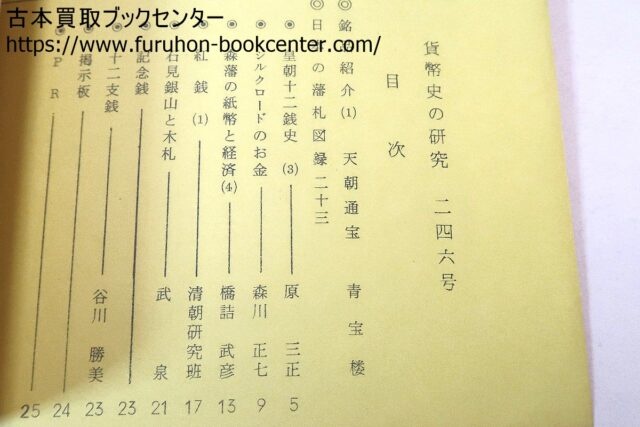 古本買取ブックセンター
https://www.furuhon-bookcenter.com/
貨幣史の研究 二四六号
目次
◎ 銘 紹介 (1) 天朝通宝 青宝楼
◎ 日 の藩札図録 二十三
◉ 皇朝十二銭史 (3) 原 三正 5
◉ シルクロードのお金 森川 正七 9
◉ 森藩の紙幣と経済 (4) 橋詰 武彦 13
◉ 紅銭 (1) 清朝研究班 17
◉ 石見銀山と木札 武 泉 21
◉ 記念銭 23
◉ 十二支銭 谷川 勝美 23
◉ 掲示板 24
◉ PR 25